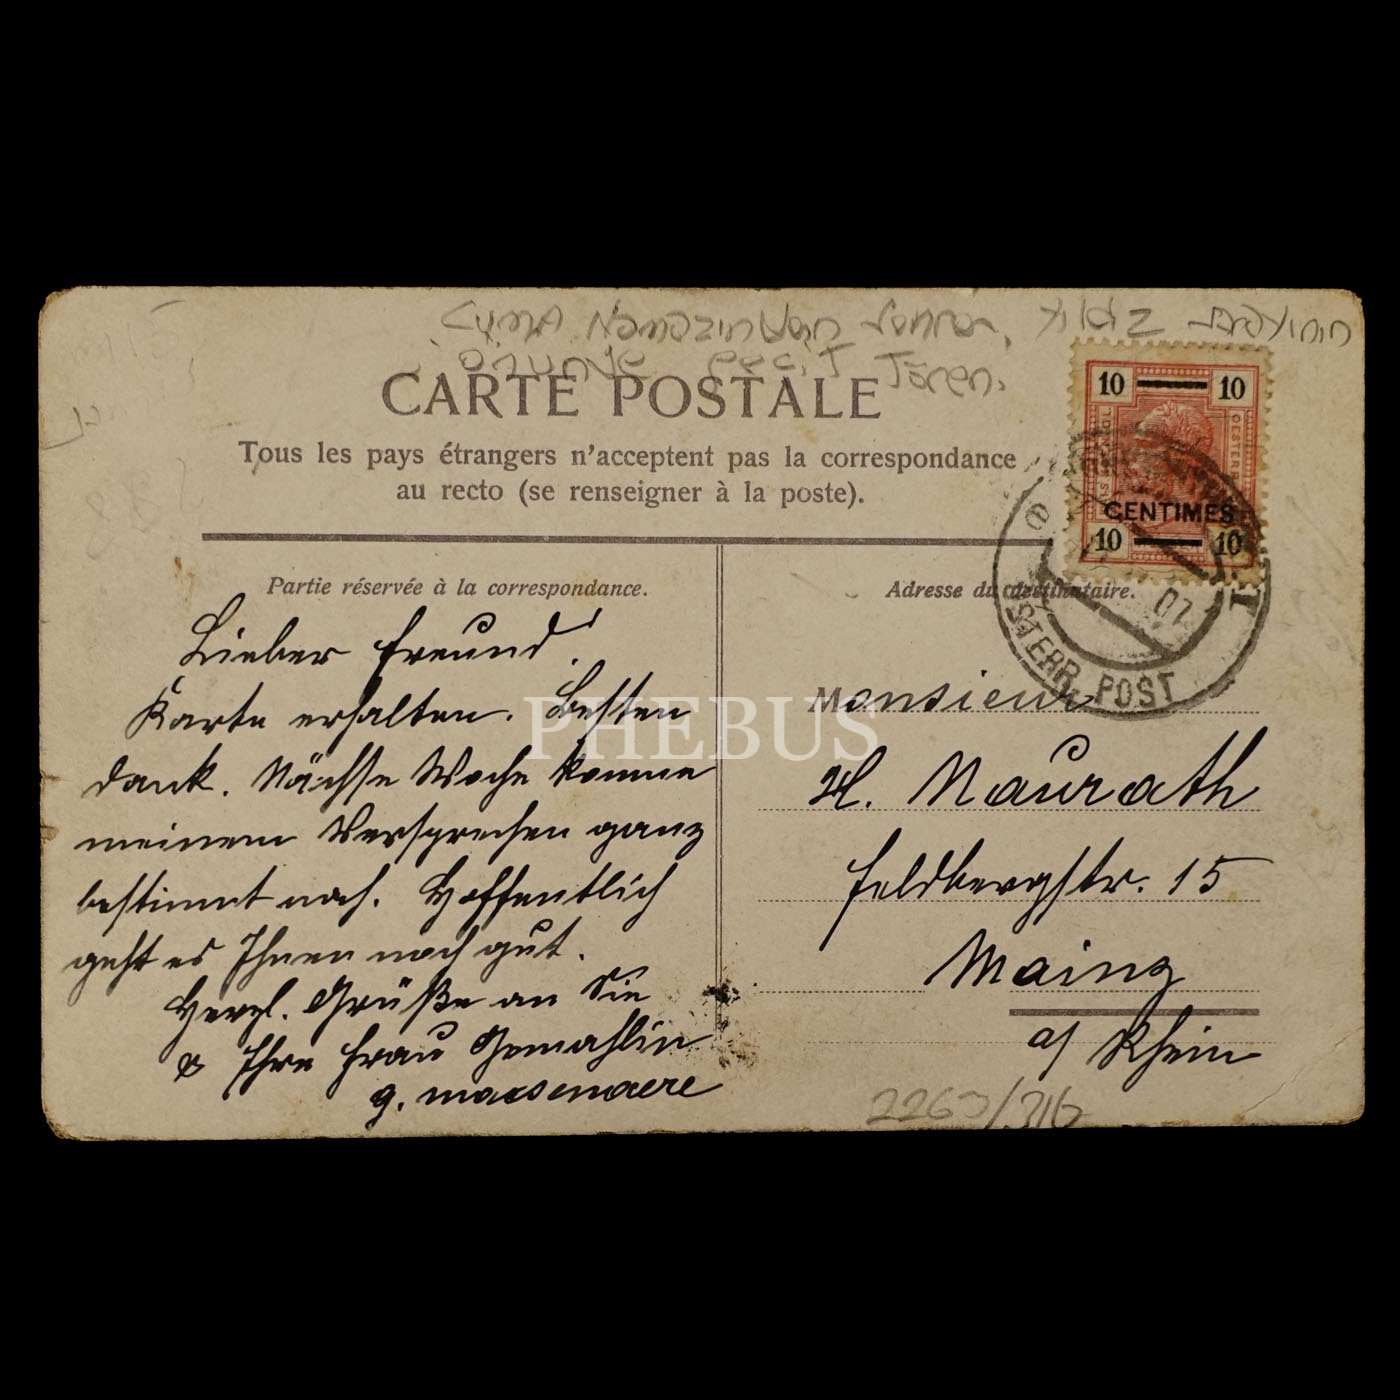 Cuma Namazından sonra, Yıldız Sarayının
önünde Tören.
CARTE POSTALE
Tous les pays étrangers n'acceptent pas la correspondance
au recto (se renseigner à la poste).
10 10
CENTIMES
10 10
07
STERR. POST
Partie réservée à la correspondance.
Adresse du destinataire.
Lieber Freund!
Karte erhalten. Besten
Dank. Nächste Woche komme
meinem Versprechen ganz
bestimmt nach. Hoffentlich
geht es Ihnen noch gut.
Herzl. Grüße an Sie
& Ihre Frau Gemahlin
Monsieur
H. Maurath
Feldbergstr. 15
Mainz
a/ Rhein
PHEBUS